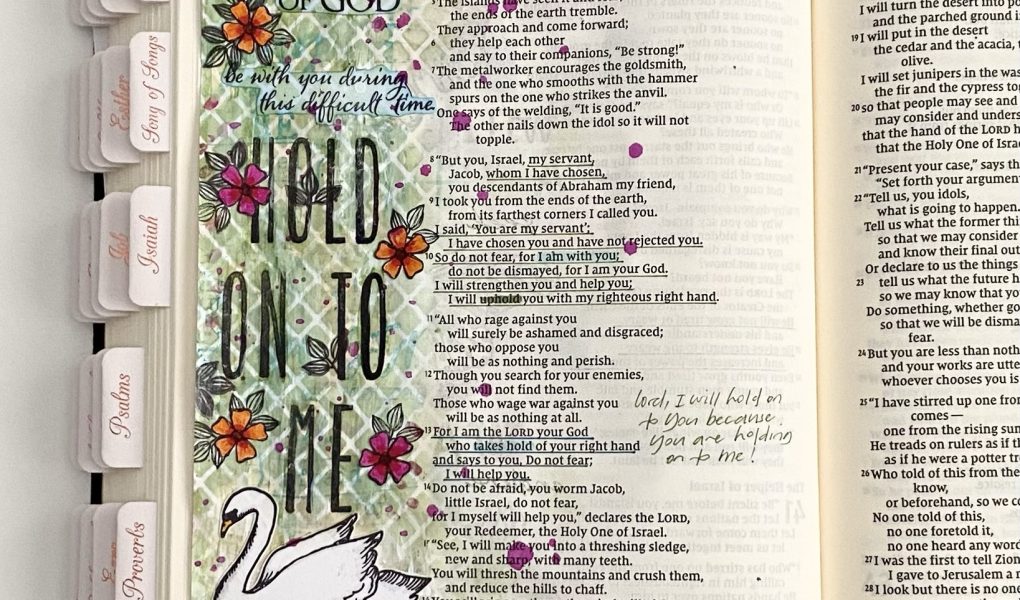 Esther
Song of Songs
Job
Isaiah
Psalms
Proverbs
OF GOD
be with you during
this difficult time.
HOLD
ON TO
ME
the ends of the earth tremble.
They approach and come forward;
6 they help each other
and say to their companions, “Be strong!”
7 The metalworker encourages the goldsmith,
and the one who smooths with the hammer
spurs on the one who strikes the anvil.
One says of the welding, “It is good.”
The other nails down the idol so it will not
topple.
8 “But you, Israel, my servant,
Jacob, whom I have chosen,
you descendants of Abraham my friend,
9 I took you from the ends of the earth,
from its farthest corners I called you.
I said, ‘You are my servant’;
I have chosen you and have not rejected you.
10 So do not fear, for I am with you;
do not be dismayed, for I am your God.
I will strengthen you and help you;
I will uphold you with my righteous right hand.
11 “All who rage against you
will surely be ashamed and disgraced;
those who oppose you
will be as nothing and perish.
12 Though you search for your enemies,
you will not find them.
Those who wage war against you
will be as nothing at all.
13 For I am the LORD your God
who takes hold of your right hand
and says to you, Do not fear;
I will help you.
14 Do not be afraid, you worm Jacob,
little Israel, do not fear,
for I myself will help you,” declares the LORD,
your Redeemer, the Holy One of Israel.
“See, I will make you into a threshing sledge,
new and sharp, with many teeth.
You will thresh the mountains and crush them,
and reduce the hills to chaff.
Lord, I will hold on
to You because
You are holding
on to me!
I will turn the desert into
and the parched ground
19 I will put in the desert
the cedar and the acacia,
olive.
I will set junipers in the
the fir and the cypress
20 so that people may see and
may consider and
that the hand of the LORD
the Holy One of
21 “Present your case,” says
“Set forth your
22 “Tell us, you idols,
what is going to happen.
Tell us what the former
so that we may consider
and know their final
Or declare to us the things
23 tell us what the future
so we may know that
Do something, whether
so that we will be
fear.
24 But you are less than
and your works are
whoever chooses you is
25 “I have stirred up one
comes—
one from the rising
He treads on rulers as if
as if he were a potter
26 Who told of this from the
know,
or beforehand, so we
No one told of this,
no one foretold it,
no one heard any
27 I was the first to tell
I gave to Jerusalem a
28 I look but there is no